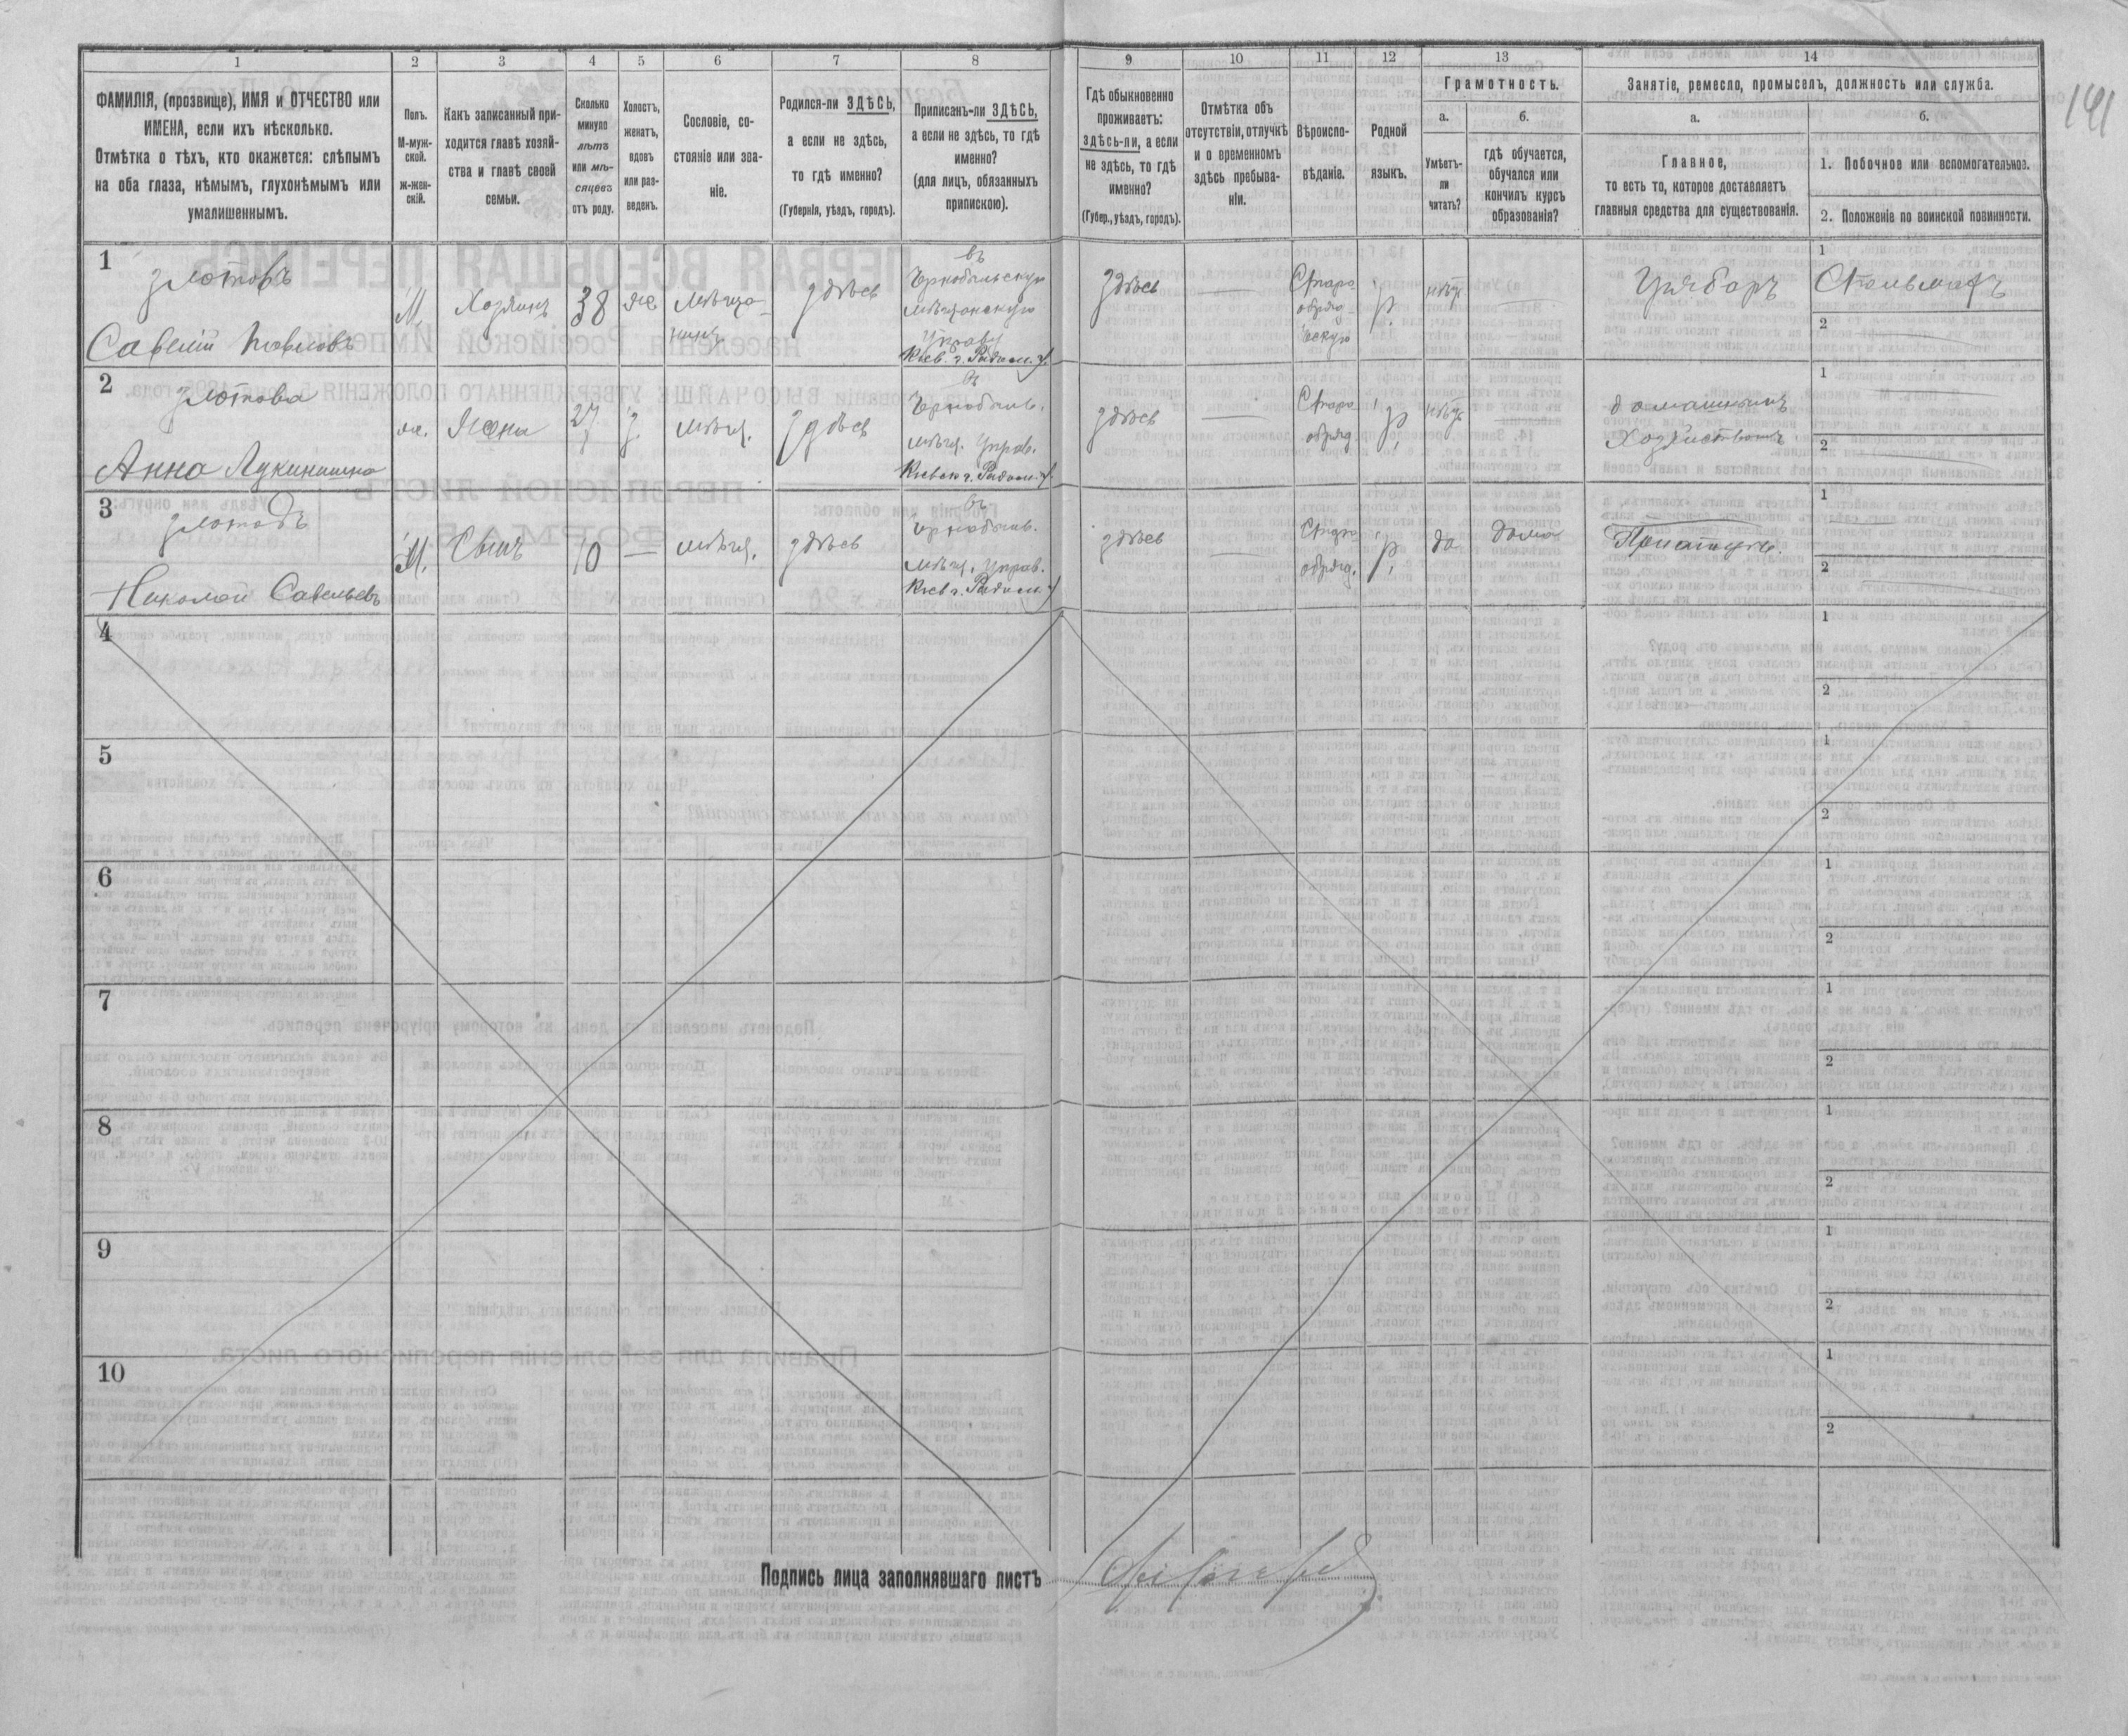 141
1
2
3
4
5
6
7
8
9
10
11
12
13
14
ФАМИЛІЯ, (прозвище), ИМЯ и ОТЧЕСТВО или
ИМЕНА, если ихъ нѣсколько.
Отмѣтка о тѣхъ, кто окажется: слѣпымъ
на оба глаза, нѣмымъ, глухонѣмымъ или
умалишеннымъ.
Полъ.
М-муж-
ской.
ж-жен-
скій.
Какъ записанный при-
ходится главѣ хозяй-
ства и главѣ своей
семьи.
Сколько
минуло
лѣтъ
или мѣ-
сяцевъ
отъ роду.
Холостъ,
женатъ,
вдовъ
или раз-
веденъ.
Сословіе, со-
стояніе или зва-
ніе.
Родился-ли ЗДѢСЬ,
а если не здѣсь,
то гдѣ именно?
(Губернія, уѣздъ, городъ).
Приписанъ-ли ЗДѢСЬ,
а если не здѣсь, то гдѣ
именно?
(для лицъ, обязанныхъ
припискою).
Гдѣ обыкновенно
проживаетъ:
здѣсь-ли, а если
не здѣсь, то гдѣ
именно?
(Губер., уѣздъ, городъ).
Отмѣтка объ
отсутствіи, отлучкѣ
и о временномъ
здѣсь пребыва-
ніи.
Вѣроиспо-
вѣданіе.
Родной
языкъ.
Грамотность.
а.
Умѣетъ-
ли
читать?
б.
гдѣ обучается,
обучался или
кончилъ курсъ
образованія?
Занятіе, ремесло, промыселъ, должность или служба.
а.
Главное,
то есть то, которое доставляетъ
главныя средства для существованія.
б.
1. Побочное или вспомогательное.
2. Положеніе по воинской повинности.
1
Злотовъ
Савелій Павловъ
М.
Хозяинъ
38
же
мѣща-
нинъ
здѣсь
въ
Чернобыльскую
мѣщанскую
Управу
Кіев. г. Радом. у.
здѣсь
—
Старо
обряд-
ческую
р.
нѣтъ
—
1
Стольмахъ
2
—
2
Злотова
Анна Лукинишна
ж.
Жена
27
з.
мѣщ.
здѣсь
въ
Чернобыль.
мѣщ. Управ.
Кіевск г. Радом. у.
здѣсь
—
Старо
обряд.
р.
нѣтъ
домашнимъ
Хозяйствомъ
1
2
3
Злотовъ
Николай Савельевъ
М.
Сынъ
10
—
мѣщ.
здѣсь
въ
Чернобыль.
мѣщ. Управ.
Кіев г. Радом. у.
здѣсь
—
Старо
обряд.
р.
да
дома
При отцѣ
1
2
—
4
1
2
5
1
2
6
1
2
7
1
2
8
1
2
9
1
2
10
1
2
Подпись лица заполнявшаго листъ